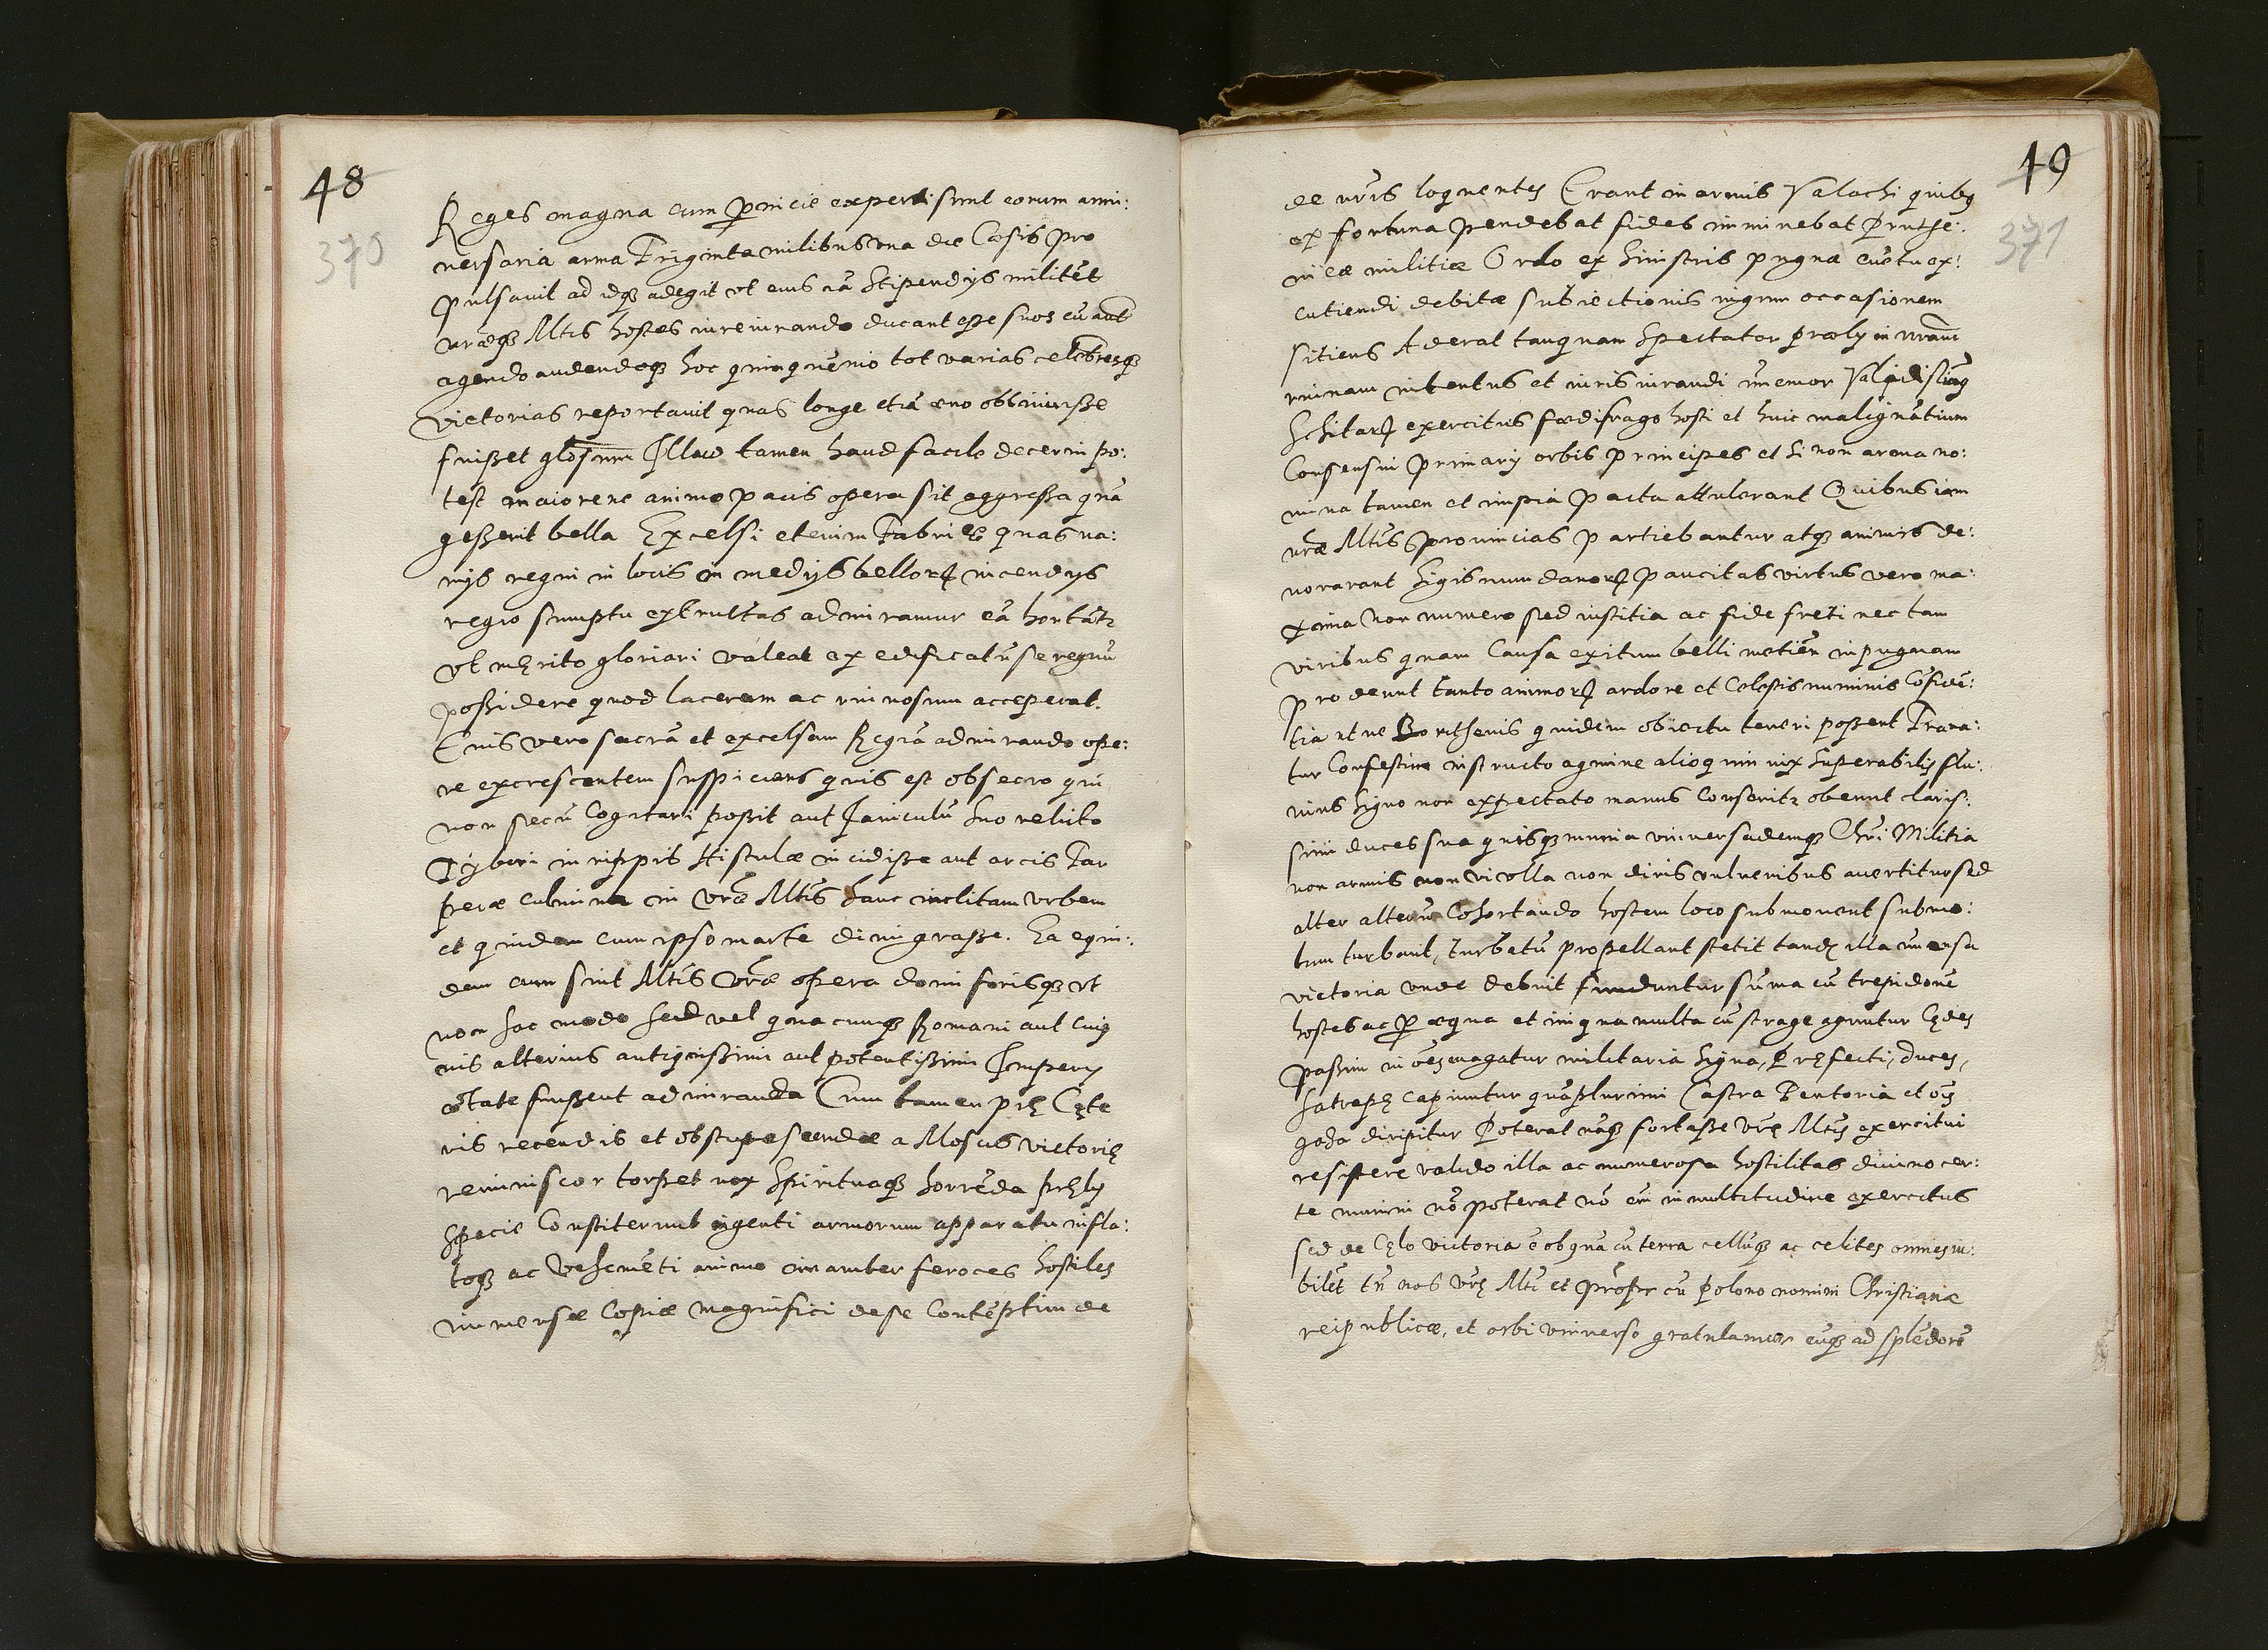 48
370
Reges magna cum pernicie experti sunt eorum anni:
versaria arma Triginta milibus una die Cæsis pro
pulsavit ad idqȝ adegit ut eius iā Stipendijs militēt
vræqȝ Mtis hostes iureiurando ducant esse suos cū aūt
agendo audendoqȝ hoc quinquēnio tot varias celebresqȝ
victorias reportavit quas longe etiā ævo obtinuisse
fuisset glosum Illud tamen haud facile decerni po:
test maiorene animo pacis opera sit aggressa quā
gesserit bella Excelsi etenim Fabricæ quas va:
rijs regni in locis in medijs bellorꝝ incendijs
regio sumptu extructas admiramur eā hortātr
ut merito gloriari valeat ex edificatū se regnū
possidere quod lacerum ac ruinosum acceperat.
Enis vero sacrā et excelsam Regiā admirando ope:
re excrescentem suspiciens quis est obsecro qui
non secū Cogitari possit aut Janiculū suo relicto
Tyberi in rippis Histulæ incidisse aut arcis Tar
peiæ culmina in vræ Mtis hanc inclitam urbem
et quidem cum ipso marte dimigrasse. Ea equi:
dem cum sint Mtis Vræ opera domi forisqȝ ut
non hoc modo sed vel quacunqȝ Romani aut cuiꝯ
vis alterius antiquissimi aut potentissimi Imperij
ætate fuissent admiranda Cum tamen prę Cęte
ris recendis et obstupescendæ a Moscis victorię
reminiscor torpet vox spiritusqȝ horrēda pręlij
specie Constiterunt ingenti armorum apparatu infla:
toqȝ ac vehemēti animo inaniter feroces hostiles
inmensæ Copiæ magnifici de se Contēptim de
49
371
de vris loquentes Erant in armis Valachi quibꝯ
ex fortuna pendebat fides imminebat Pruthe:
nicæ militiæ Ordo ex sinistris pugnæ evētu ex:
cutiendi debitæ subiectionis iugum occasionem
sitiens Aderat tanquam spectator prælij in vrām
ruinam intentus et iuris iurandi īmemor Validissimꝯ
Schitarꝝ exercitus fœdifrago hosti et huic malignātium
Consensui primarij orbis principes et si non arma no:
mina tamen et impia pacta attulerant Quibus iam
vræ Mtis provincias partiebantur atqȝ animis de:
vorarant Sigismundanorꝝ paucitas virtus vero ma:
xima non numero sed iustitia ac fide freti nec tam
viribus quam Causa exitum belli metiēn in pugnam
prodeunt tanto animorꝝ ardore et Celestis numinis Cōfidē:
tia ut ne Boristhenis quidem obiectu teneri possent Trana:
tur Confestim instructo agmine alioquin vix superabilis flu:
vius signo non expectato manus Conseritr obeunt claris:
simi duces sua quisqȝ munia universademqȝ Chri Militia
non armis non vi ulla non diris vulneribus avertitur sed
alter alterū Cohortando hostem loco submovent submo:
tum turbant, turbatū propellant stetit tandē illa īmensa
victoria unde debuit funduntur sūma cū trepidone
hostes ac per æqua et iniqua multa cū strage aguntur Cędes
passim in ōes vagatur militaria signa, Pręfecti, duces,
satrapę capiuntur quāplurimi Castra Tentoria et ōis
gaza diripitur Poterat nāqȝ fortasse vrę Mtis exercitui
resistere valido illa ac numerosa hostilitas divino cer:
te numini nō poterat nō eni in multitudine exercitus
sed de Cęlo victoria ē ob quā cū terra tellusqȝ ac celites omnes iu:
bilēt tū nos vrę Mti et prospe cū polono nomini Christianæ
reipublicæ, et orbi universo gratulamur eiusqȝ ad splēdorē